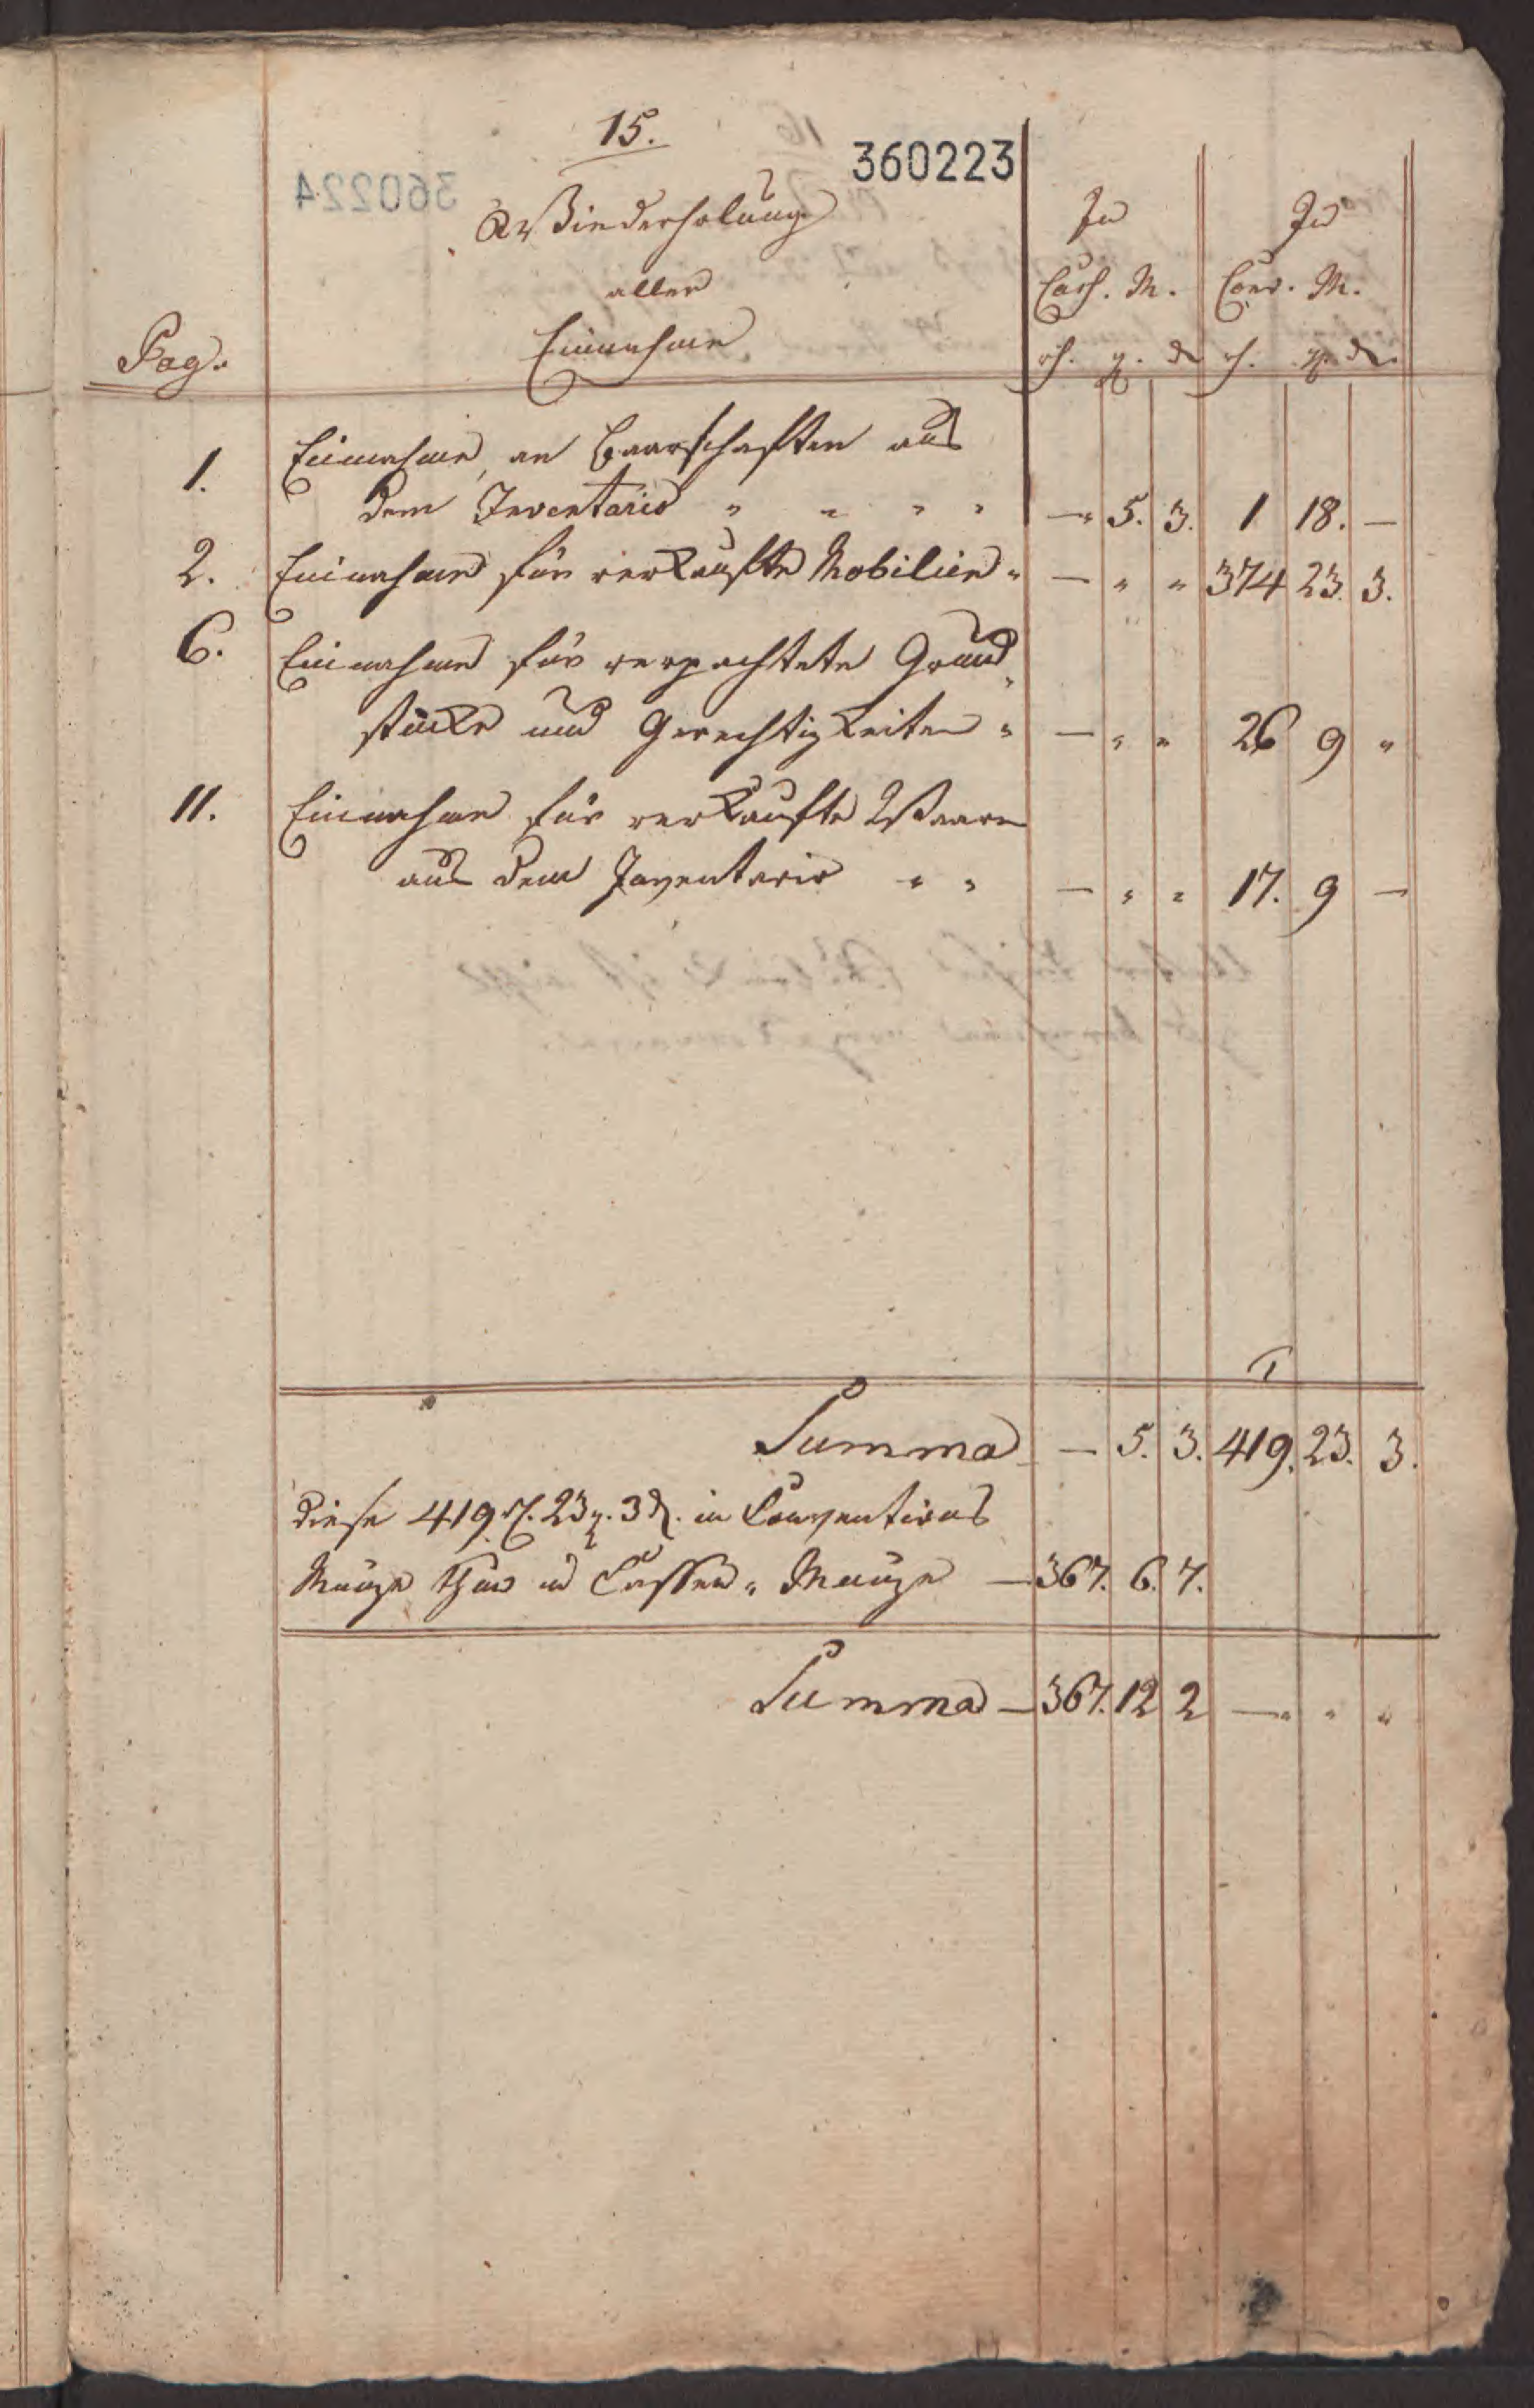 15.
360223
Wiederholung
aller
Einnahme
Pag.
In
Cass. M.
rth. g. d
In
Conv. M.
rth. g. d.
1. Einnahme an Baarschaften aus
dem Inventario " " " " —" 5. 3. 1 18. —
2. Einnahme für verkaufte Mobilien " — " " 374 23. 3.
6. Einnahme für verpachtete Grund„
stücke und Gerechtigkeiten " — " " 26 9 "
11. Einnahme für verkaufte Waaren
aus dem Inventario " " — " " 17. 9 —
Summa — 5. 3. 419. 23. 3.
Diese 419 rth. 23 g. 3 d. in Conventions
Münze thun in Cassen„ Münze — 367. 6. 7.
Summa — 367. 12 2 —" " "